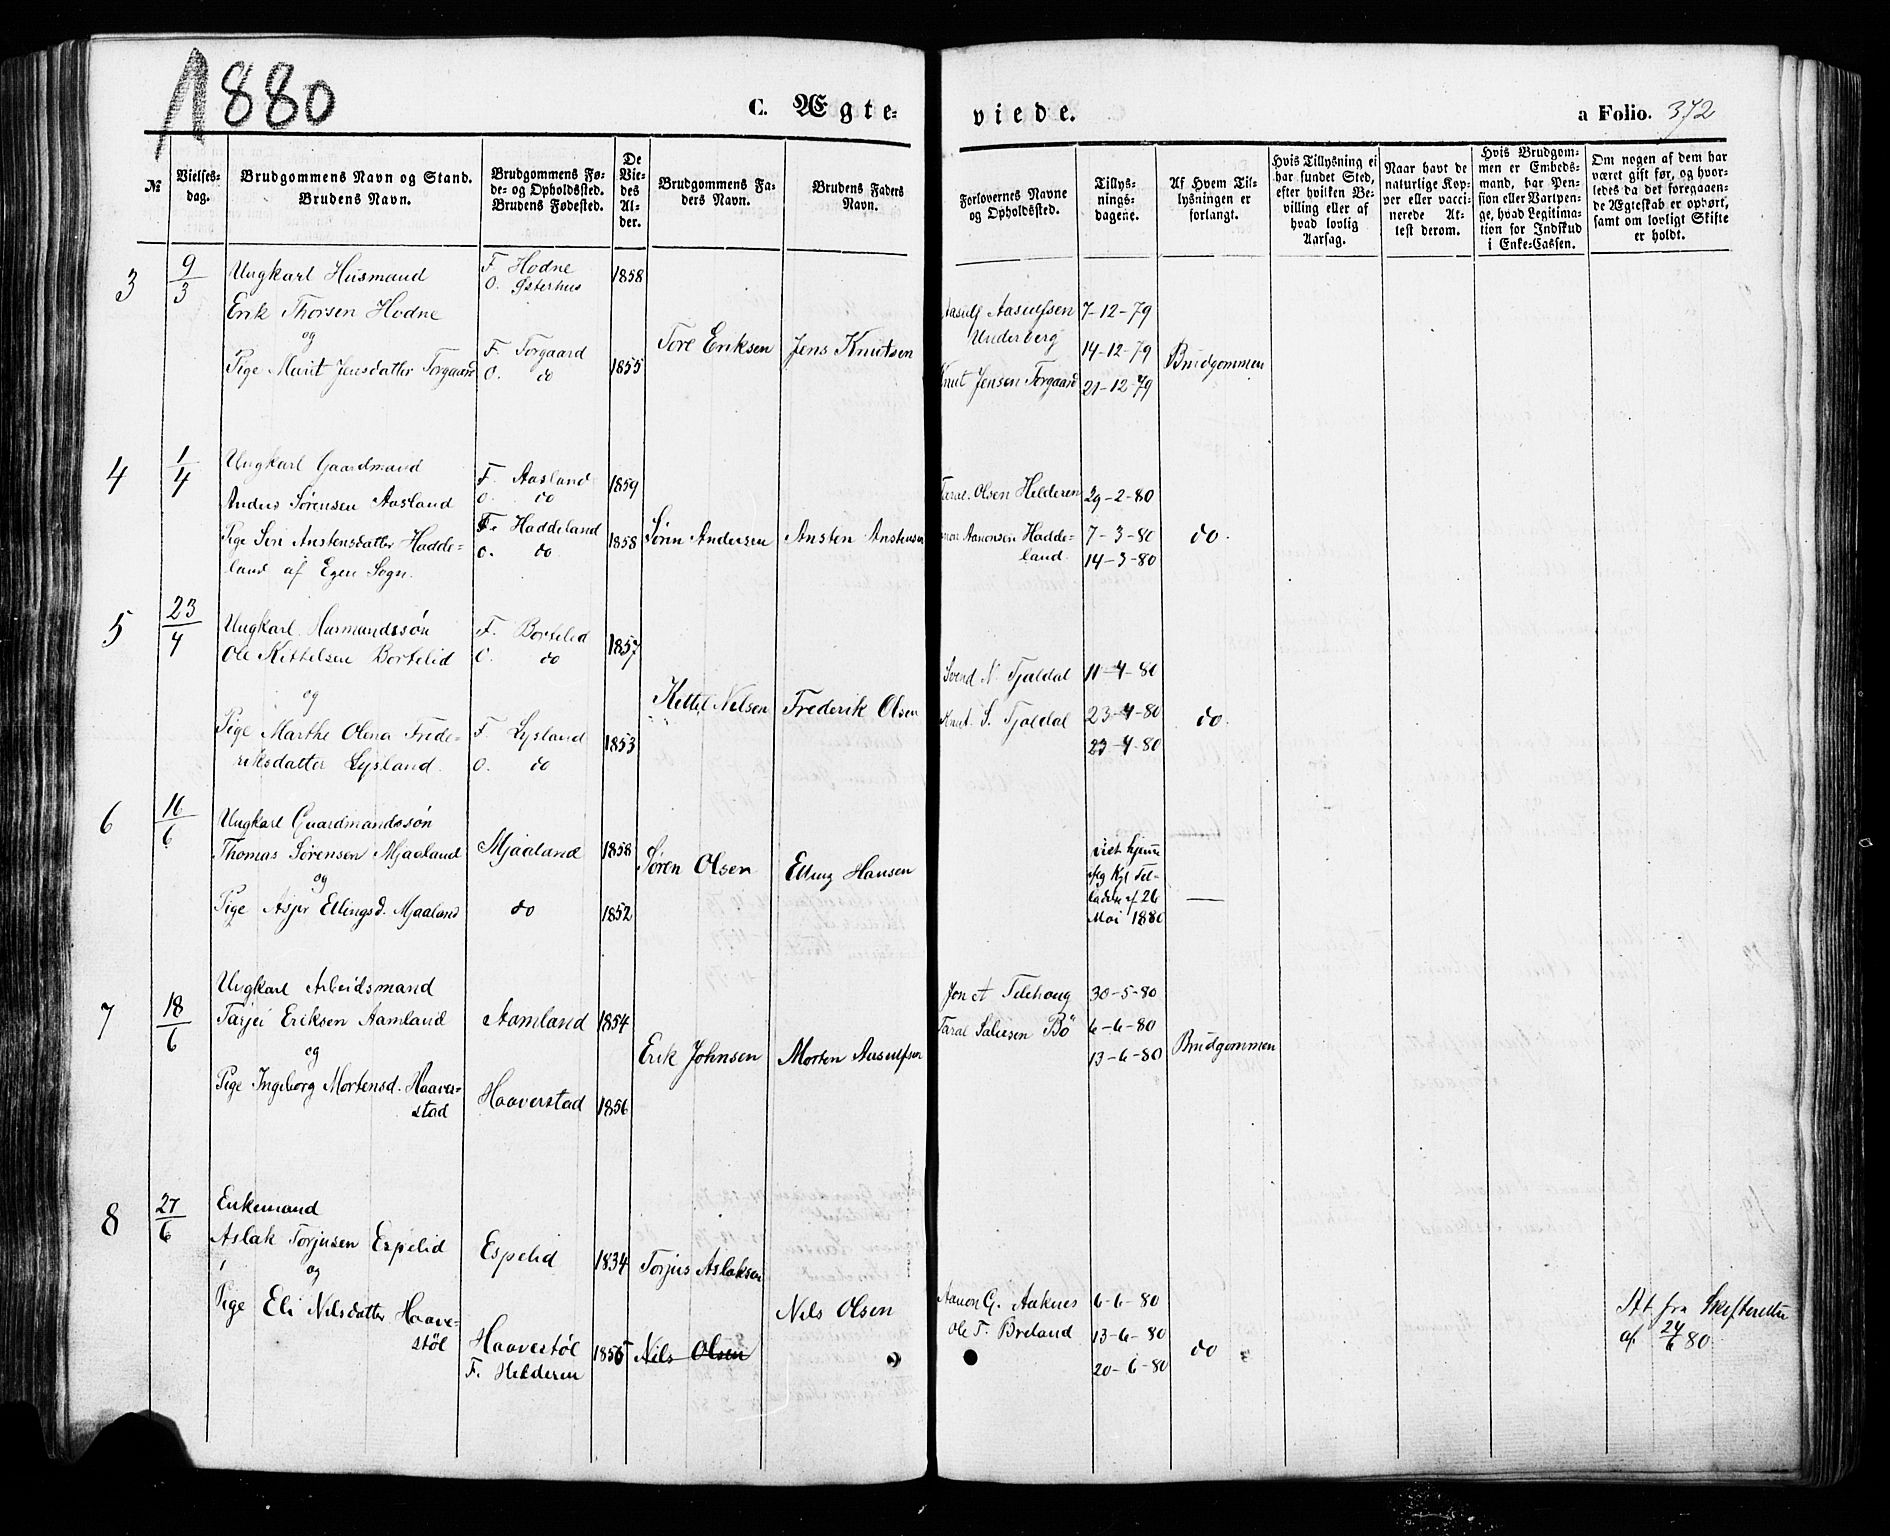 1880
C. Ægte-
viede.
a Folio. 372
№
Vielses-
dag.
Brudgommens Navn og Stand.
Brudens Navn.
Brudgommens Fø-
de- og Opholdssted.
Brudens Fødested.
De
Vie-
des
Al-
der.
Brudgommens Fa-
ders Navn.
Brudens Faders
Navn.
Forlovernes Navne
og Opholdssted.
Tillys-
nings-
dagene.
Af Hvem Til-
lysningen er
forlangt.
Hvis Tillysning ei
har fundet Sted,
efter hvilken Be-
villing eller af
hvad lovlig
Aarsag.
Naar havt de
naturlige Kop-
per eller vacci-
nerede At-
test derom.
Hvis Brudgom-
men er Embeds-
mand, har Pen-
sion eller Vartpen-
ge, hvad Legitima-
tion for Indskud
i Enke-Cassen.
Om nogen af dem har
været gift før, og hvor-
ledes da det foregaaen-
de Ægteskab er ophørt,
samt om lovligt Skifte
er holdt.
3
9/3
Ungkarl Husmand
Erik Thorsen Hodne
og
Pige Marit Jensdatter Torgaard
F. Hodne
O. Østerhus
F. Torgaard
O. do
1858
1855
Tore Eriksen
Jens Knutsen
Aasulf Aasulfsen
Underberg
Knut Jensen Torgaard
7-12-79
14-12-79
21-12-79
Brudgommen
4
1/4
Ungkarl Gaardmand
Anders Sørensen Aasland
Pige Siri Anstensdatter Hadde-
land af Egen Sogn.
F. Aasland
O. do
F. Haddeland
O. do
1859
1858
Søren Andersen
Ansten Anstensen
Taral Olsen Helderen
Aanonsen Hadde-
land.
29-2-80
7-3-80
14-3-80
do.
5
23/4
Ungkarl Husmandssøn
Ole Kittelsen Bortelid
og
Pige Marthe Olena Frede-
riksdatter Lysland.
F. Bortelid
O. do
F. Lysland
O. do
1857
1853
Kittel Nilsen
Frederik Olsen
Svend N. Tjaldal
Knut S. Tjaldal
11-4-80
23-4-80
23-4-80
do.
6
16/6
Ungkarl Gaardmandssøn
Thomas Sørensen Mjaaland
og
Pige Asjer Ellingsd. Mjaaland
Mjaaland
do
1858
1852
Søren Olsen
Elling Hansen
viet hjemme
ifølg Kgl Til-
ladelse af 26
Mai 1880
—
7
18/6
Ungkarl Arbeidsmand
Tarjei Eriksen Aamland
og
Pige Ingeborg Mortensd. Haaver-
stad
Aamland
Haaverstad
1854
1856
Erik Johnsen
Morten Aasulfsen
Jon A Telehaug
Taral Salvesen Bö
30-5-80
6-6-80
13-6-80
Brudgommen
8
27/6
Enkemand
Aslak Torjusen Espelid
og
Pige Eli Nilsdatter Haave-
støl
Espelid
Haavestøl
F. Helderen
1834
1856
Torjus Aslaksen
Nils Olsen
Nils Olsen
Aanon G. Aaknes
Ole T. Breland
6-6-80
13-6-80
20-6-80
do
At. fra Skifteretten
af 24/6 80